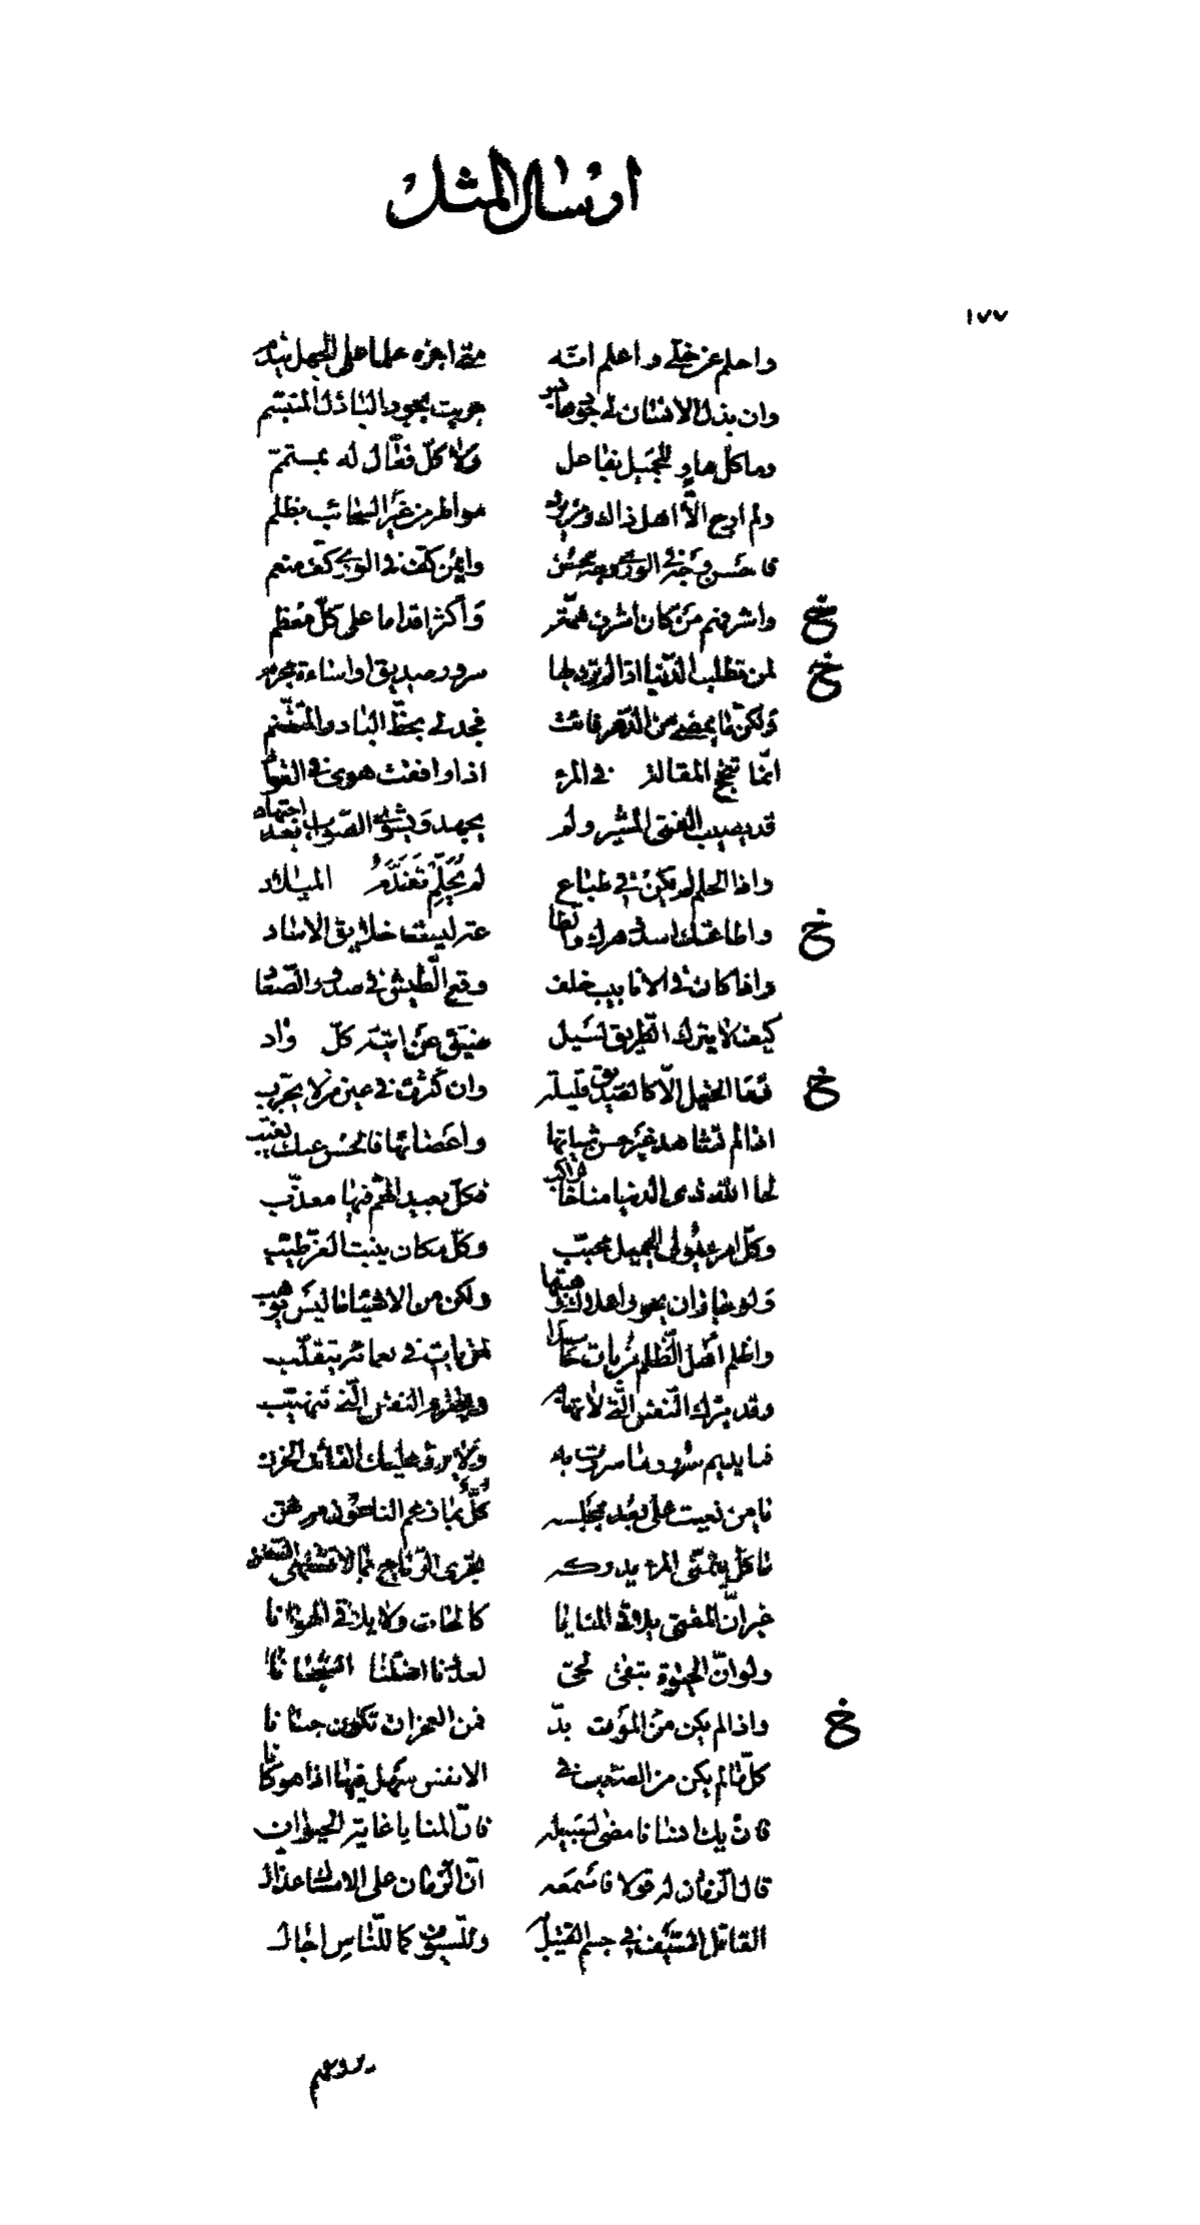 ارسال المثل
١٧٧
واحلم عن خلّي واعلم انّه متى اجزه حلما على الجهل يندم
وان بذل الانسان لي جود عابس جزيت بجود الباذل المتبسّم
وما كلّ هاوٍ للجميل بفاعل ولا كلّ فعّال له بمتمّم
ولم ارج الّا اهل ذاك ومن يرد مواطر من غير السحائب يظلم
فاحسن وجه في الورى وجه محسن وايمن كفّ في الورى كفّ منعم
واشرفهم من كان اشرف همّة واكثر اقداما على كلّ معظم
لمن تطلب الدّنيا اذا لم ترد بها سرور صديق او اساءة مجرم
ولكنّ ما يمضي من الدّهر فائت فجد لي بحظّ البادر المتغنّم
انّما تنجح المقالة في المرء اذا وافقت هوى في الفؤاد
قد يصيب الفتى المشير ولم يجهد ويشوى الصّواب بعد اجتهاد
واذا الحلم لم يكن في طباع لم يُحَلِّم تَقَدُّمُ الميلاد
واطاعتك اسد دهرك والطا عة ليست خلايق الاساد
واذا كان في الانابيب خلف وقع الطيش في صدور الصّعاد
كيف لا يترك الطريق لسيل ضيّق عن اتيّه كلّ واد
وما الخيل الّا كالصديق قليلة وان كثرت في عين من لا يجرّب
اذا لم تشاهد غير حسن شياتها واعضائها فالحسن عنك مغيّب
لحا الله ذي الدنيا مناخا لراكب فكلّ بعيد الهمّ فيها معذّب
وكلّ امرء يولي الجميل محبّب وكلّ مكان ينبت العزّ طيّب
ولو جاز ان يحووا علاك وهبتها ولكن من الاشياء ما ليس يوهب
واظلم اهل الظّلم من بات حاسدا لمن بات في نعمائه يتقلّب
وقد يترك النّفس الّتي لا تهابه ويخترم النفس الّتي تتهيّب
فما يديم سرور ما سررت به ولا يردّ عليك الفائت الحزن
يا من نعيت على بعد بمجلسه كلّ بما زعم الناعون مرتهن
ما كلّ ما يتمنّى المرء يدركه تجري الرّياح بما لا تشتهي السّفن
غير انّ الفتى يلاقي المنايا كالحات ولا يلاقي الهوانا
ولو انّ الحيوة تبقى لحيّ لعددنا اضلّنا الشّجعانا
واذا لم يكن من الموت بدّ فمن العجز ان تكون جبانا
كلّ ما لم يكن من الصّعب في الانفس سهل فيها اذا هو كانا
فان يك انسانا مضى لسبيله فانّ المنايا غاية الحيوان
قال الزمان له قولا فاسمعه انّ الزمان على الامساك عذّال
القاتل السّيف في جسم القتيل به وللسّيوف كما للنّاس اجال